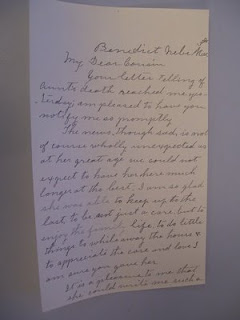 Benedict Nebr. Mar.
My Dear Cousin
Your letter telling of
Aunts death reached me yes-
terday, am pleased to have you
notify me so promptly
The news, though sad, is not
of course wholly unexpected as
at her great age we could not
expect to have her here much
longer at the best. I am so glad
she was able to keep up to the
last to be not just a care but to
enjoy the family life, to do little
things to while away the hours &
to appreciate the care and love I
am sure you gave her
It is a pleasure to me that
she could write me such a